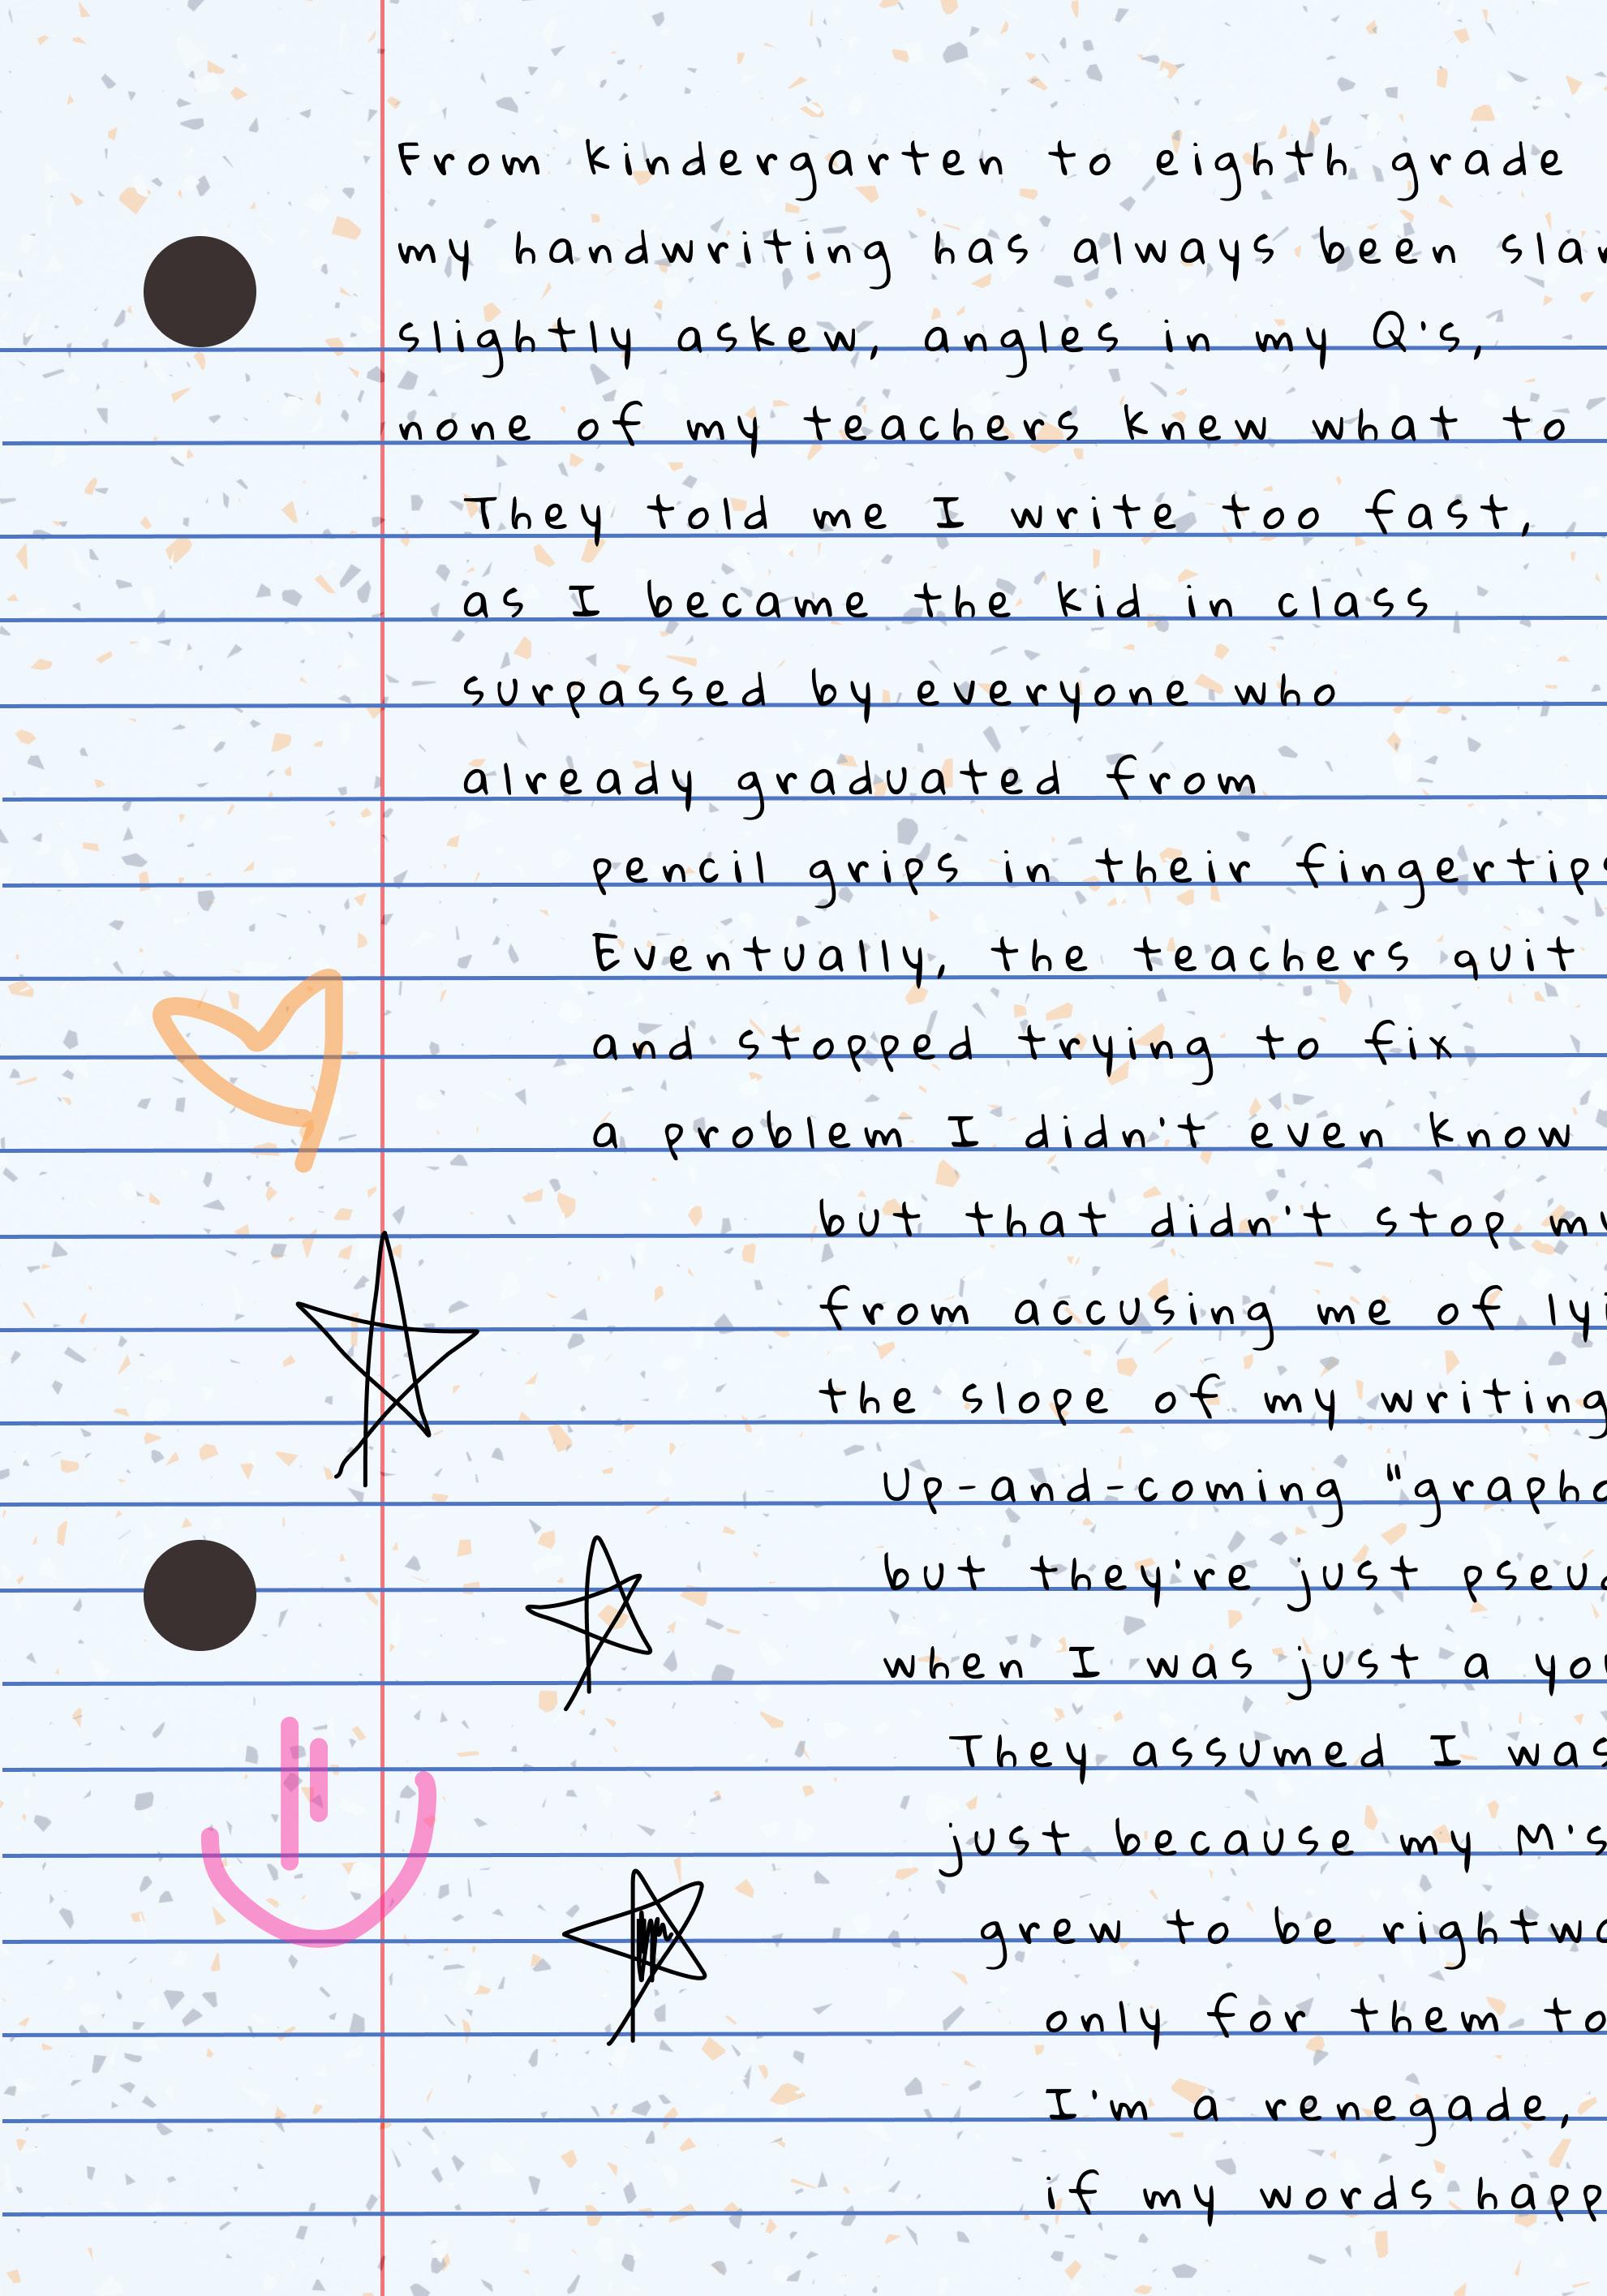 From kindergarten to eighth grade
my handwriting has always been
slightly askew, angles in my Q's,
none of my teachers knew what to
They told me I write too fast,
as I became the kid in class
surpassed by everyone who
already graduated from
pencil grips in their fingertips
Eventually, the teachers quit
and stopped trying to fix
a problem I didn't even know
but that didn't stop
from accusing me of
the slope of my writing
Up-and-coming
but they're just
when I was just a
They assumed I was
just because my M's
grew to be
only for them to
I'm a renegade,
if my words